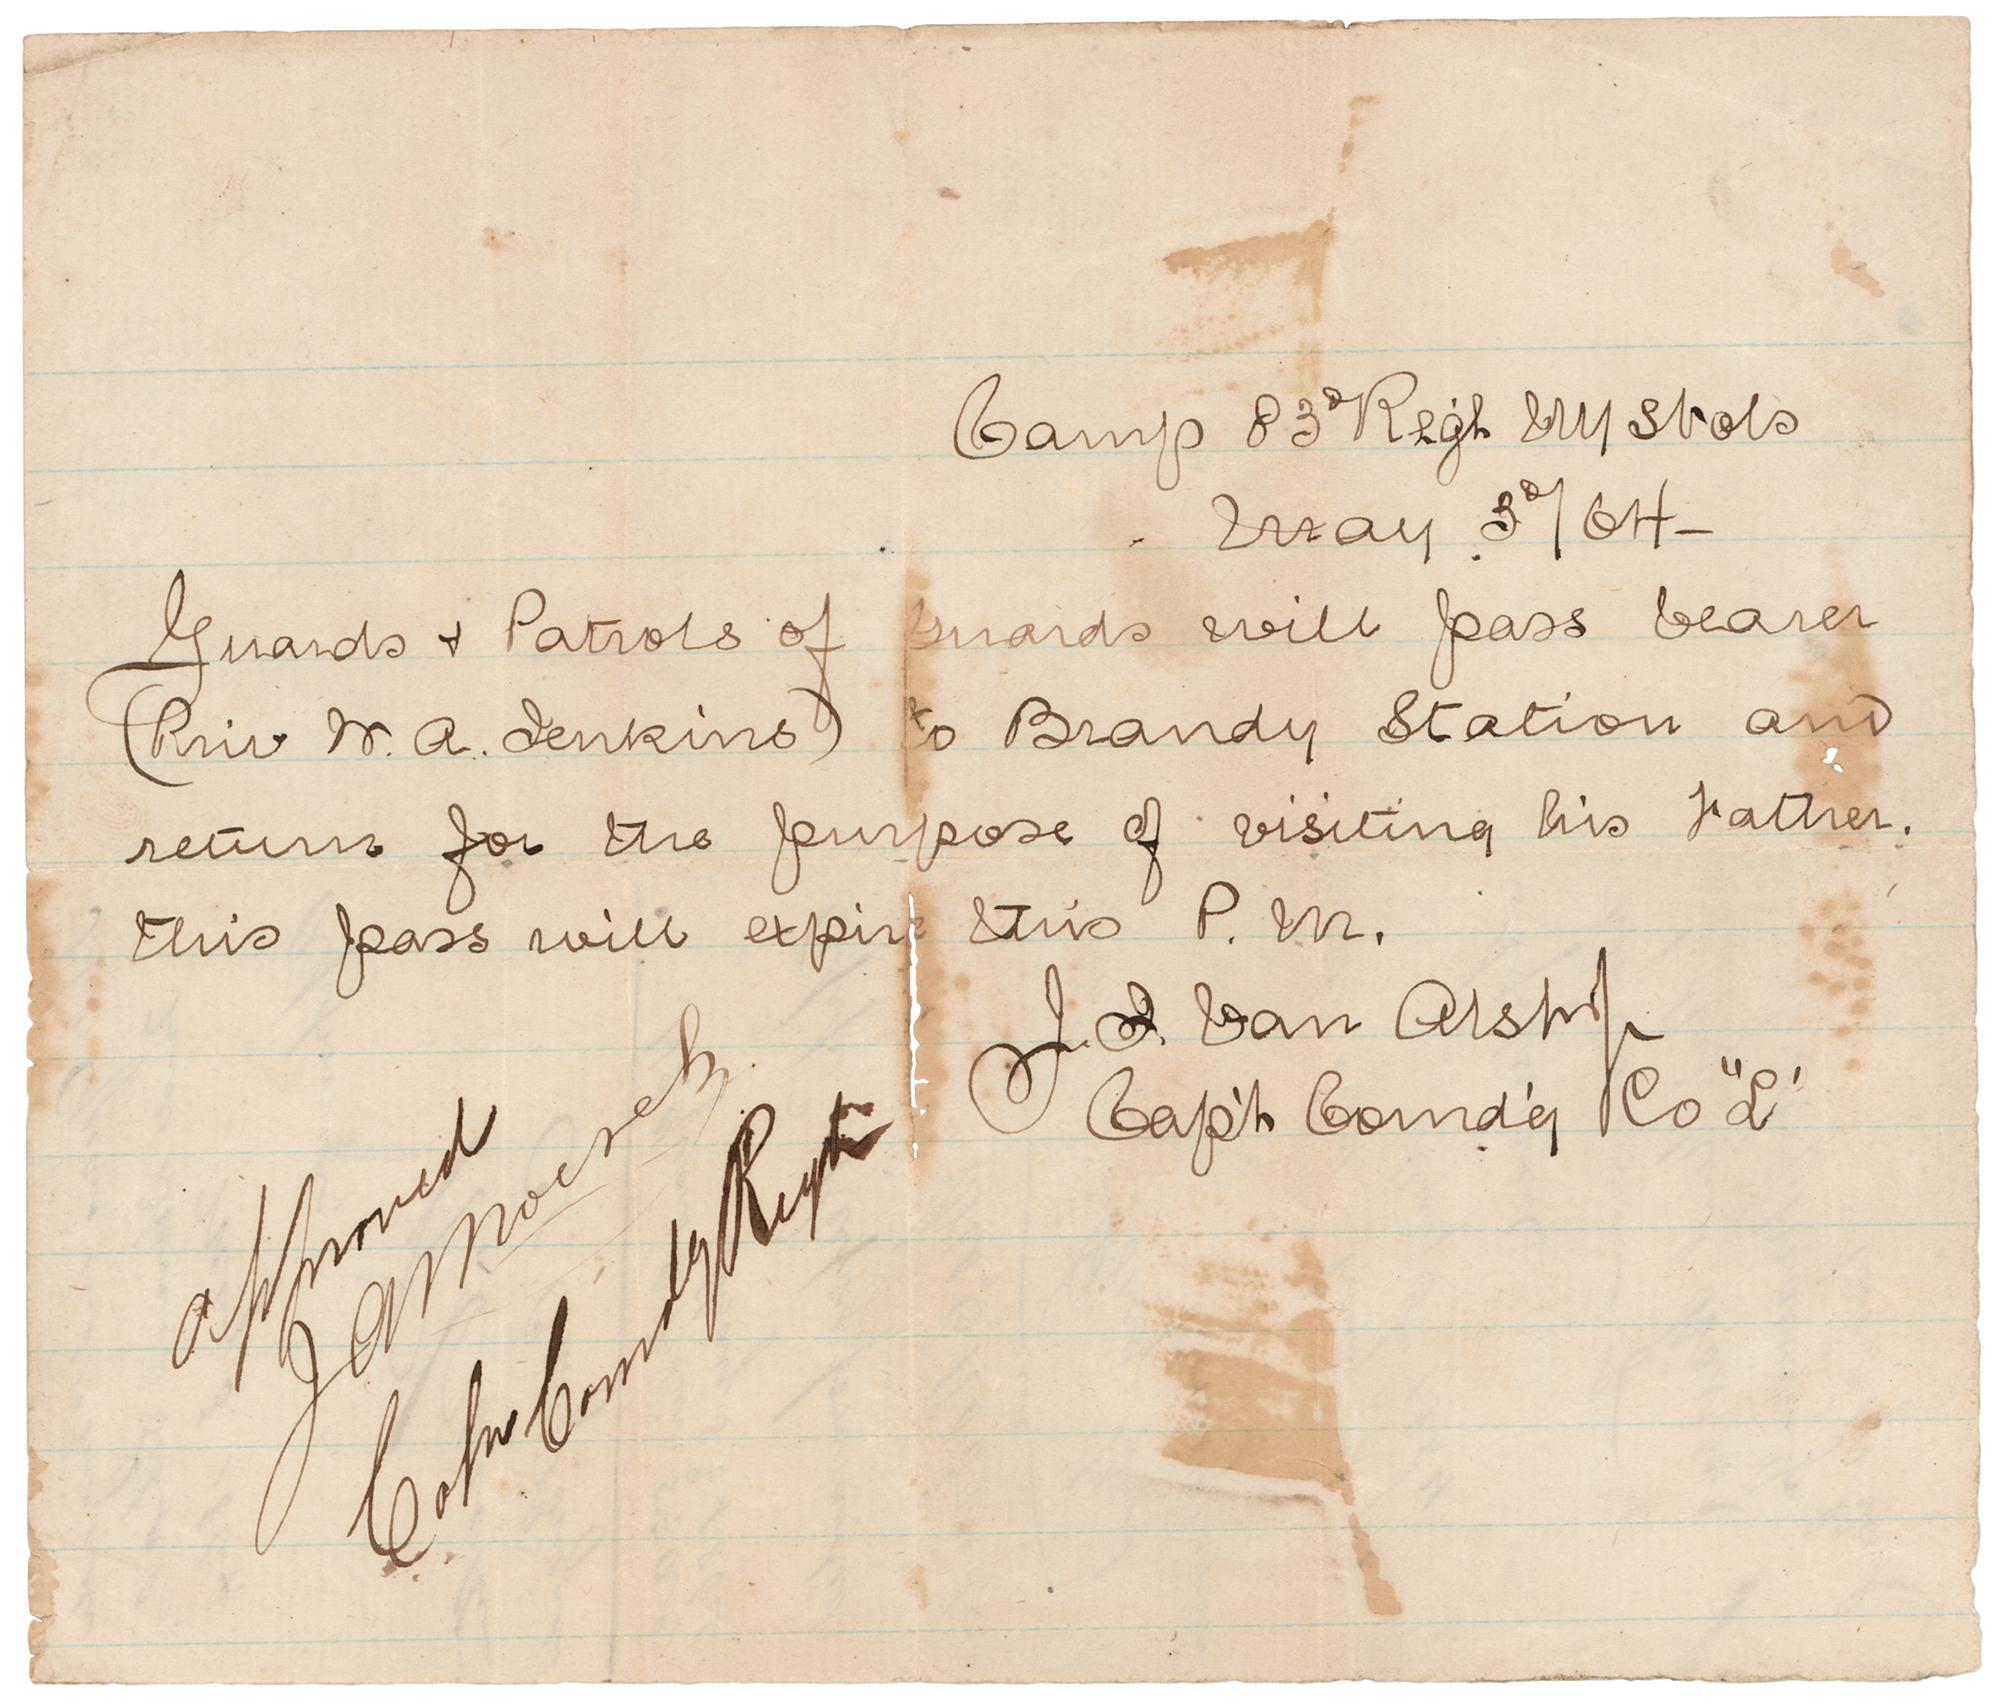 Camp 83d Regt NY S Vols
May 3d/64 -
Guards & Patrols of Guards will pass bearer
(Priv W. A. Jenkins) to Brandy Station and
return for the purpose of visiting his Father.
this pass will expire this P. M.
J. S. Van Alst
Cap't Comd'g Co "E"
approved
J A Moesch
Col Comdg Regt